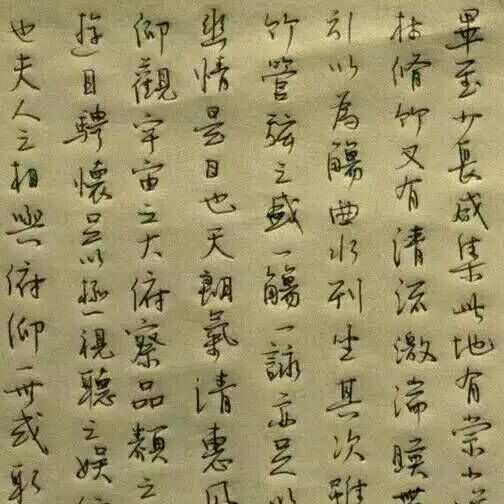 畢至少長咸集此地有崇山
林修竹又有清流激湍暎帶
引以為觴曲水列坐其次雖
竹管弦之盛一觴一詠亦足以
幽情是日也天朗氣清惠風
仰觀宇宙之大俯察品類之
遊目騁懷足以極視聽之娛信
也夫人之相與俯仰一世或取